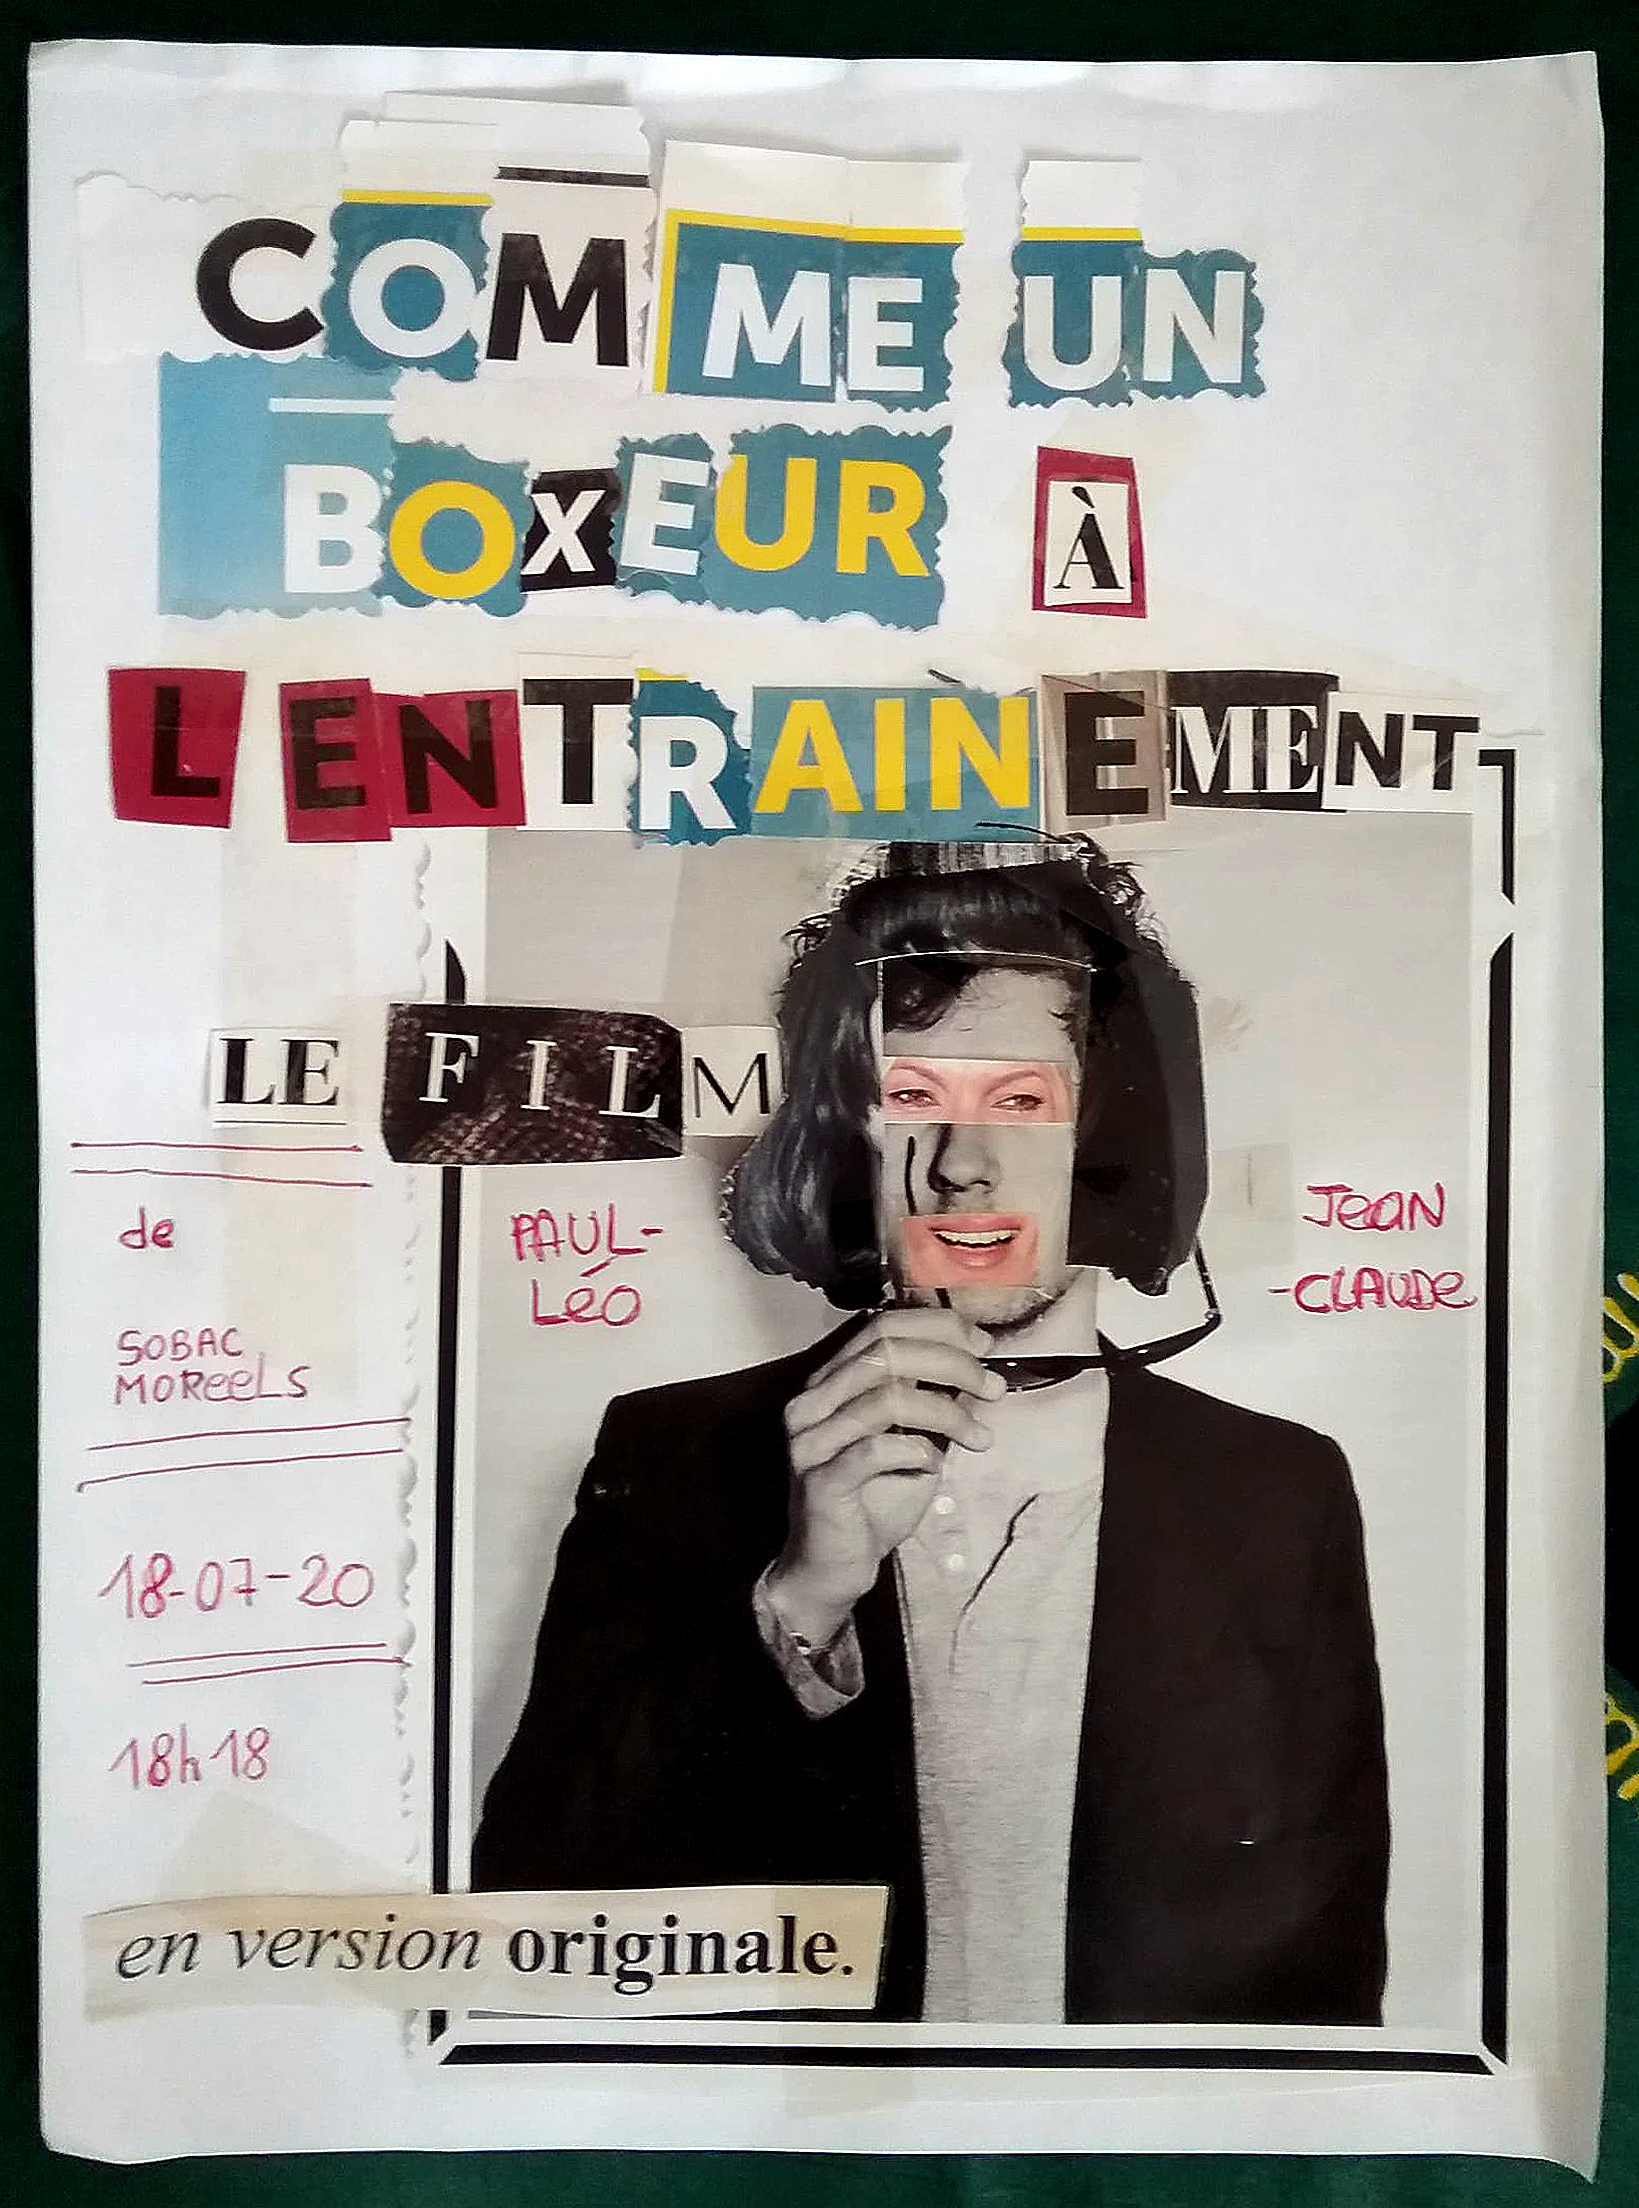 COMME UN
BOXEUR À
L ENTRAINEMENT
LE FILM
de
SOBAC
MOReeLS
PAUL-
Léo
JeaN
-CLAUDe
18-07-20
18h18
en version originale.